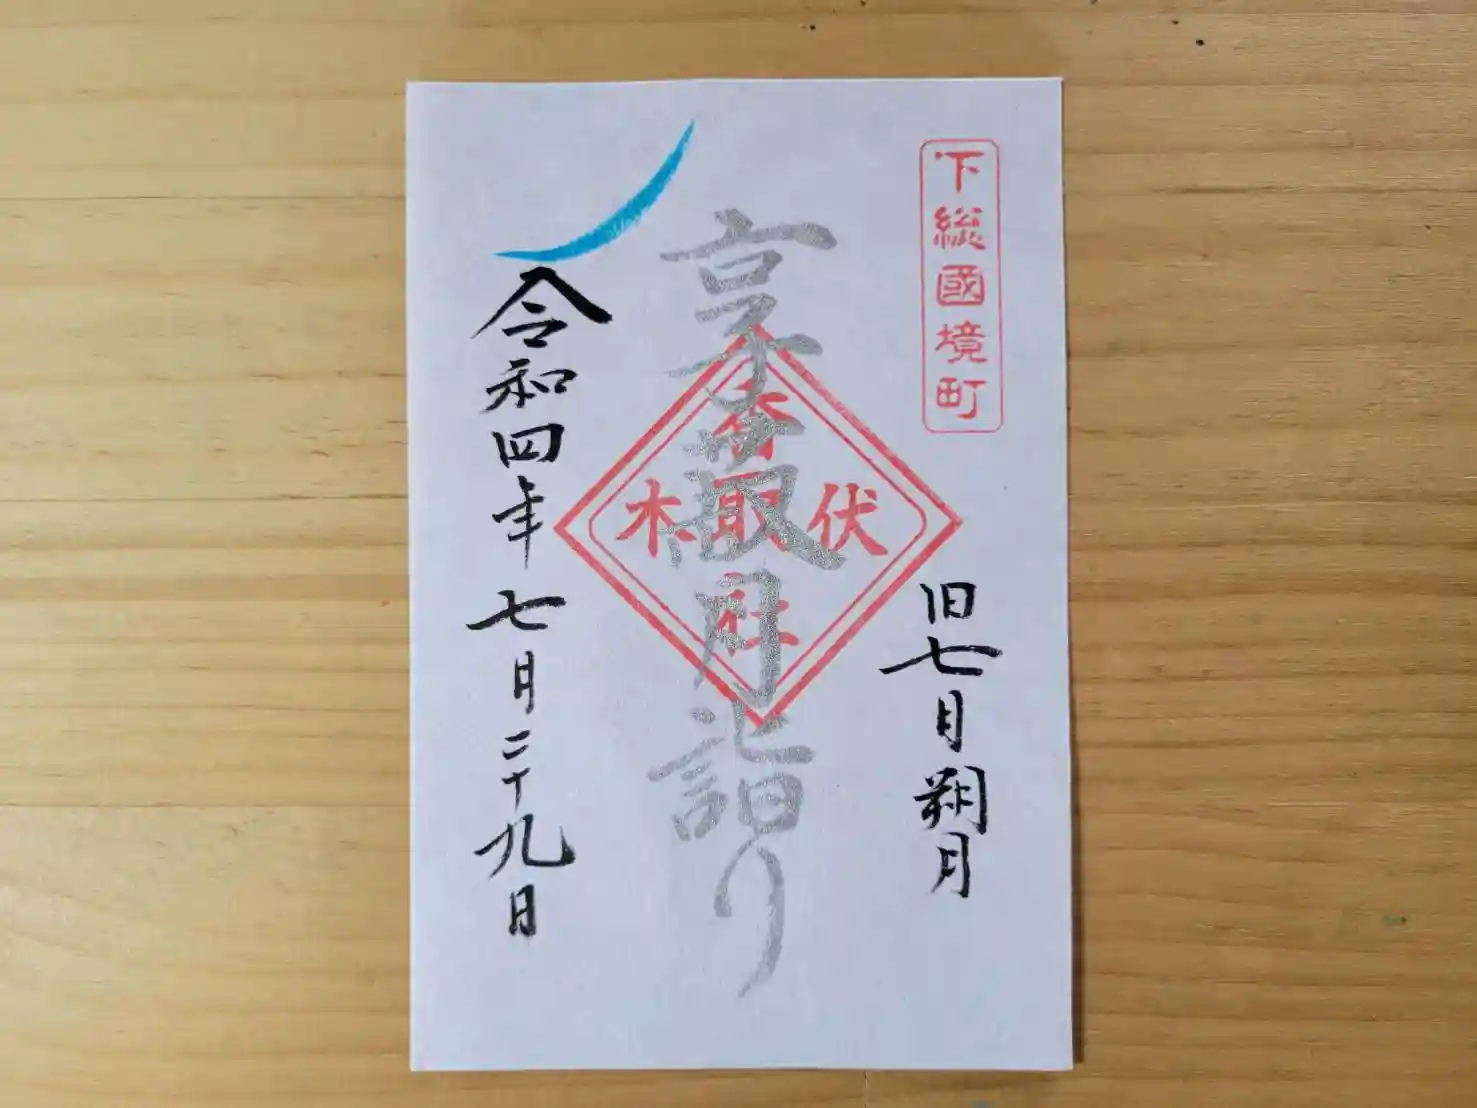 下総國境町
旧七月朔月
月詣り
伏木
香取社
令和四年七月二十九日